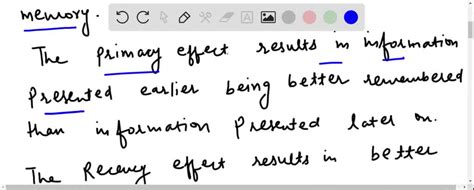 memory.
The primacy effect results in information
presented earlier being better remembered
than information presented later on.
The Recency effect results in better